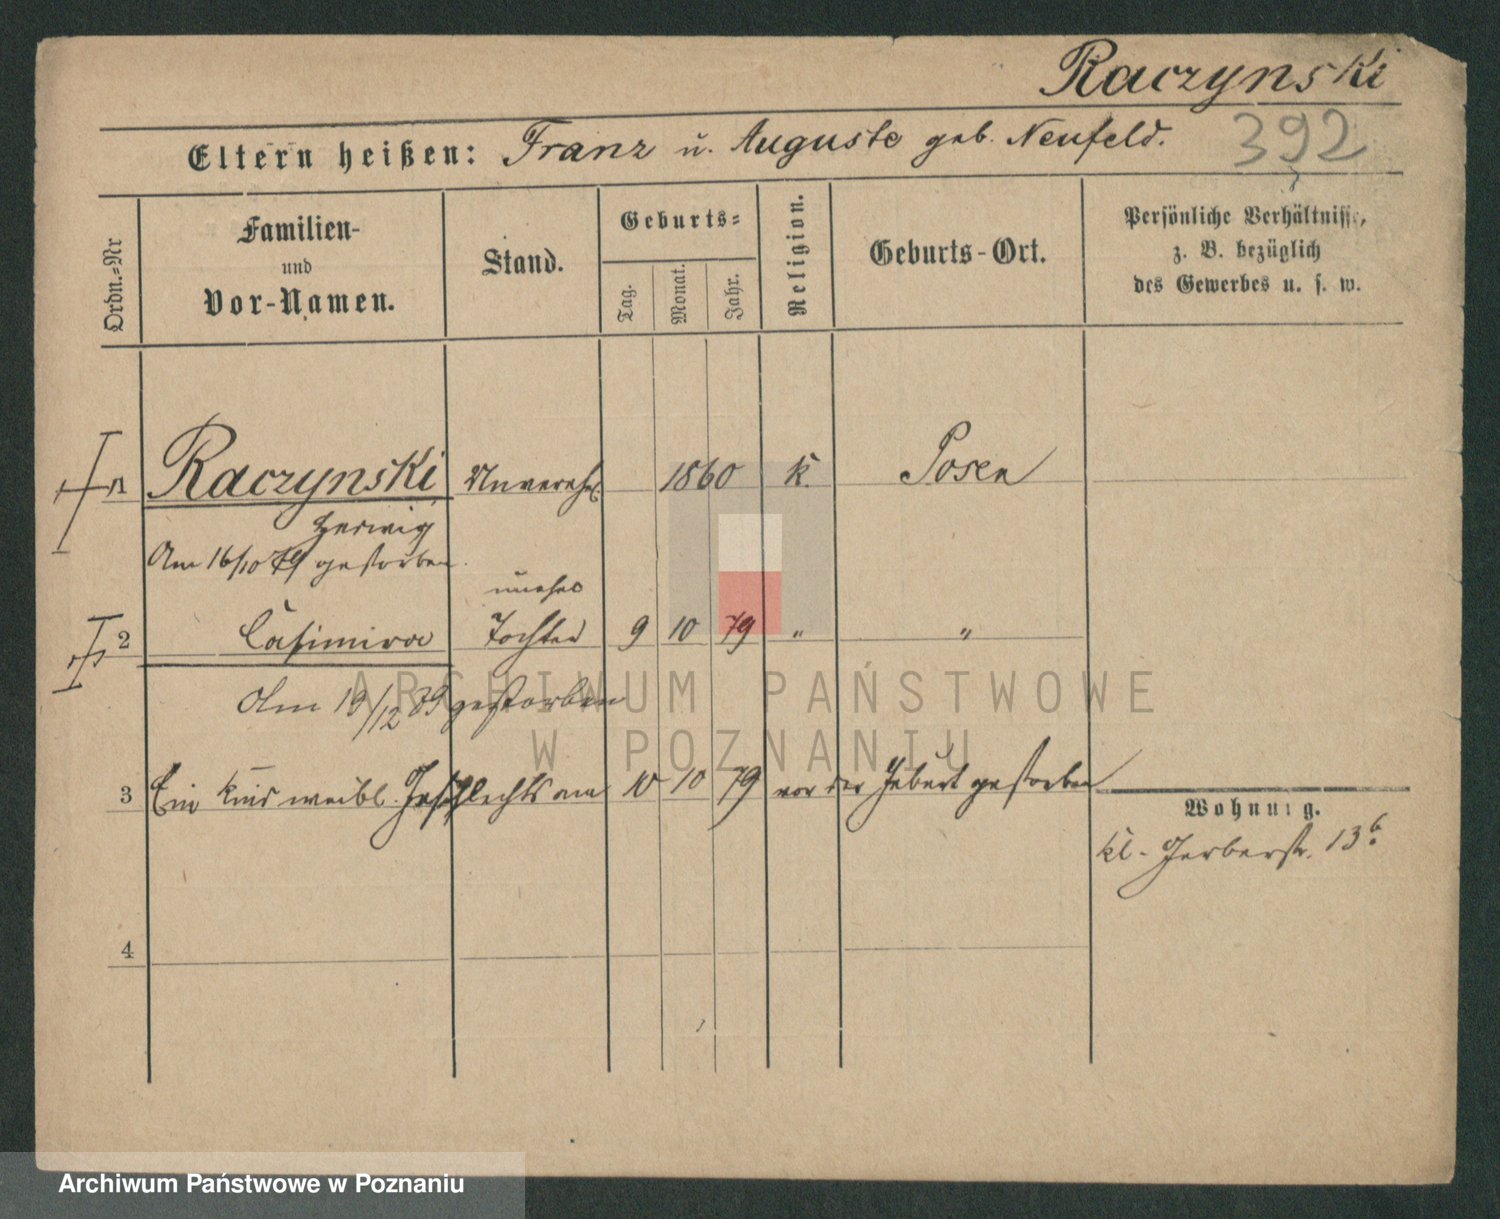 Raczynski
Eltern heißen: Franz u. Auguste geb. Neufeld.
392
Ordn.=Nr
Familien-
und
Vor-Namen.
Stand.
Geburts=
Tag.
Monat.
Jahr.
Religion.
Geburts-Ort.
Persönliche Verhältnisse,
z. B. bezüglich
des Gewerbes u. s. w.
1 Raczynski Unverehl. 1860 k. Posen
Hedwig
Am 16/10 79 gestorben.
unehel
2 Casimira Tochter 9 10 79 " "
Am 19/12 89 gestorben
3 Ein Kind weibl. Geschlechts am 10 10 79 vor der Geburt gestorben
Wohnung.
kl. Gerberstr. 13b.
4
ARCHIWUM PAŃSTWOWE
W POZNANIU
Archiwum Państwowe w Poznaniu